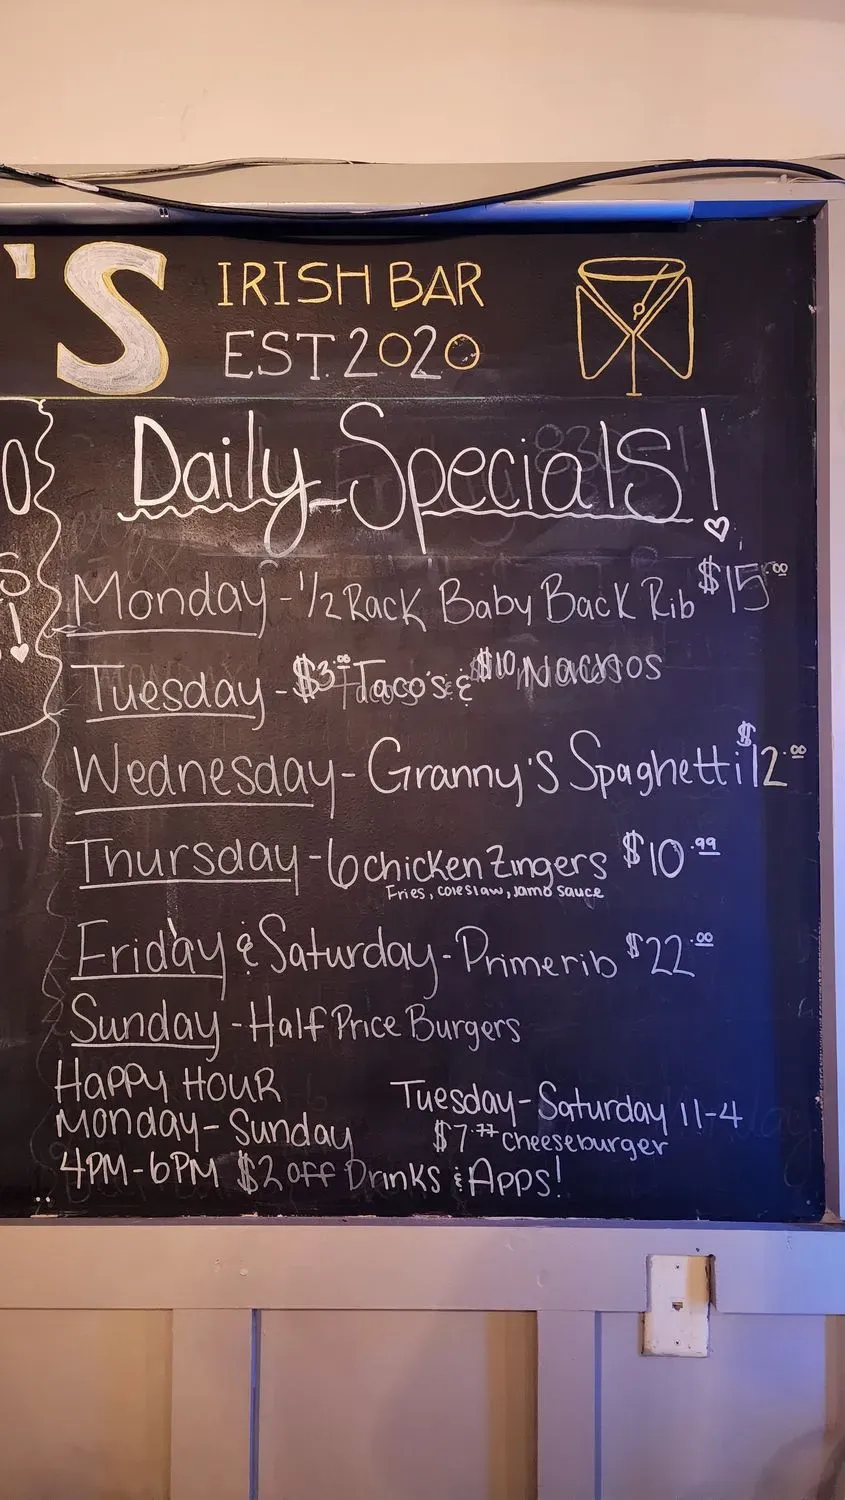 'S IRISH BAR
EST. 2020
Daily Specials!
Monday - 1/2 Rack Baby Back Rib $15.00
Tuesday - $3.00 Taco's & $10 Nachos
Wednesday - Granny's Spaghetti $12.00
Thursday - 6 chicken Zingers $10.99
Fries, coleslaw, Jamo sauce
Friday & Saturday - Primerib $22.00
Sunday - Half Price Burgers
Happy Hour
Monday - Sunday
4PM - 6PM $2 off Drinks & Apps!
Tuesday - Saturday 11-4
$7.77 cheeseburger